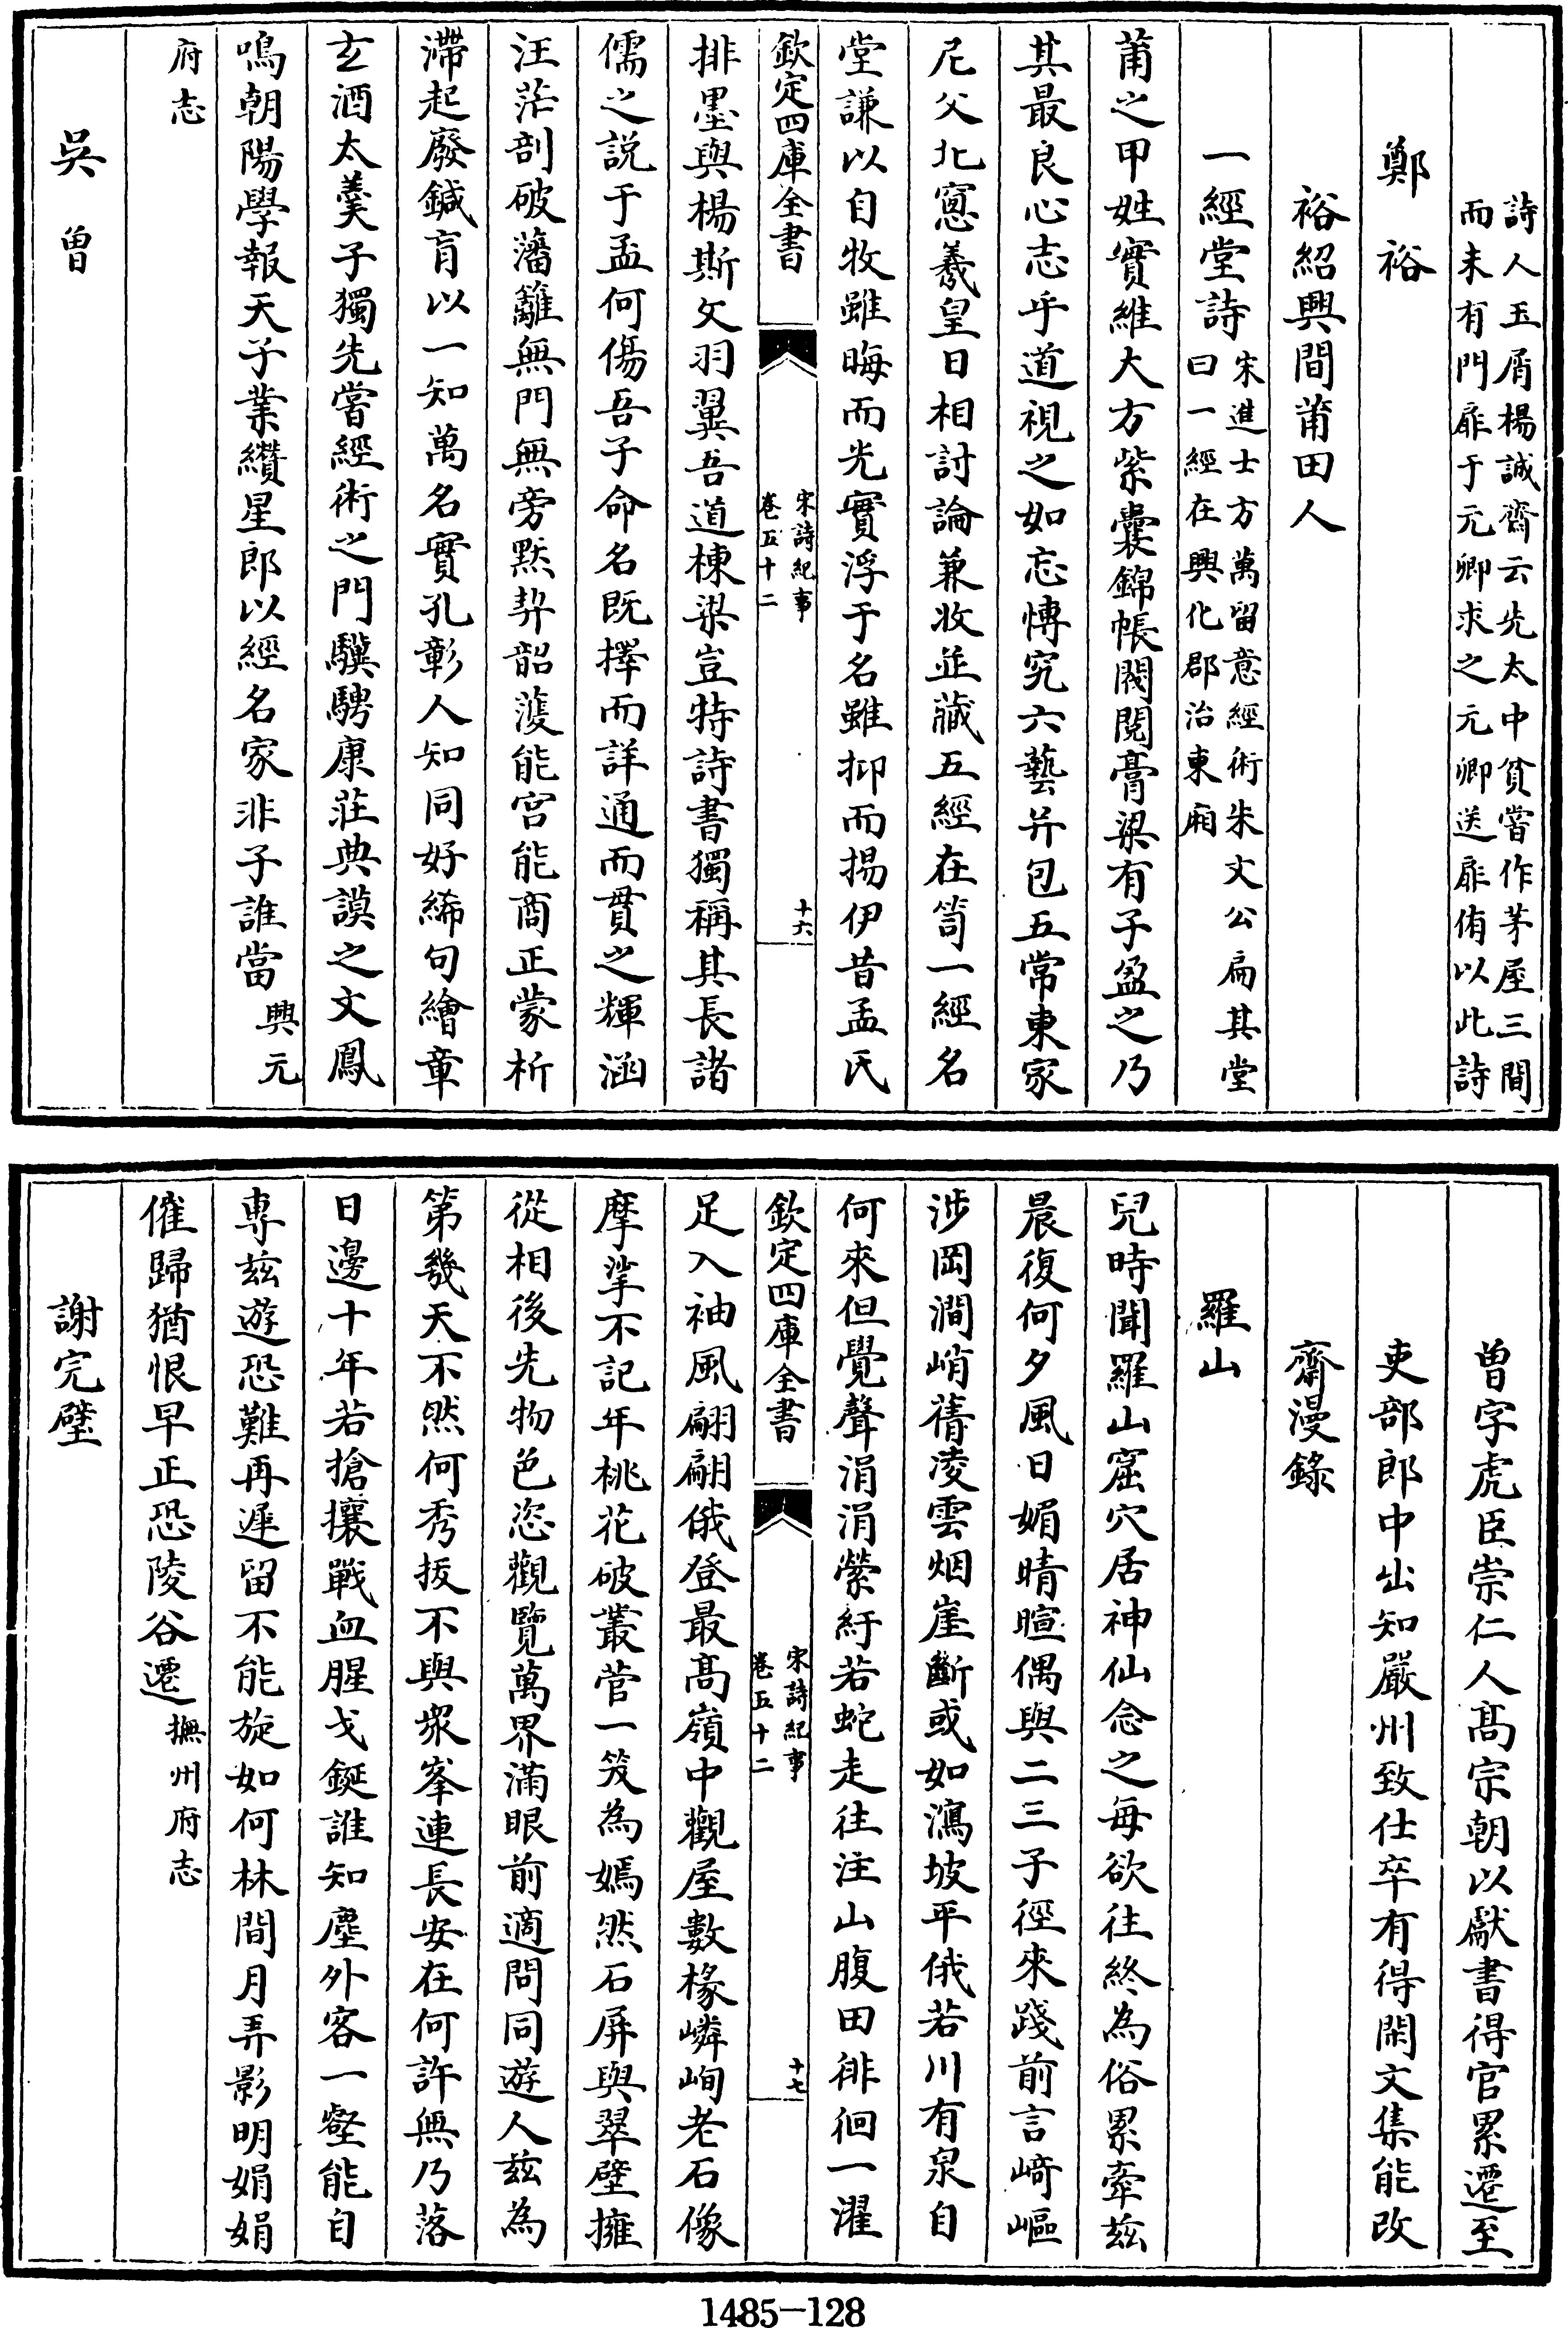 詩人玉屑楊誠齋云先太中貧嘗作茅屋三間
而未有門扉于元卿求之元卿送扉侑以此詩
鄭裕
裕紹興間莆田人
一經堂詩宋進士方萬留意經術朱文公扁其堂
曰一經在興化郡治東廂
莆之甲姓實維大方紫囊錦帳閥閱膏粱有子盈之乃
其最良心志乎道視之如忘博究六藝并包五常東家
尼父北窻羲皇日相討論兼收並藏五經在笥一經名
堂謙以自牧雖晦而光實浮于名雖抑而揚伊昔孟氏
欽定四庫全書
宋詩紀事
卷五十二
十六
排墨與楊斯文羽翼吾道棟梁豈特詩書獨稱其長諸
儒之説于孟何傷吾子命名既擇而詳通而貫之輝涵
汪茫剖破藩籬無門無旁默契韶頀能宮能商正蒙析
滯起廢鍼肓以一知萬名實孔彰人知同好絺句繪章
玄酒太羹子獨先嘗經術之門驥騁康莊典謨之文鳳
鳴朝陽學報天子業纘星郎以經名家非子誰當興元
府志
吳曾
曾字虎臣崇仁人髙宗朝以獻書得官累遷至
吏部郎中出知嚴州致仕卒有得閑文集能改
齋漫錄
羅山
兒時聞羅山窟穴居神仙念之每欲往終為俗累牽兹
晨復何夕風日媚晴暄偶與二三子徑來踐前言﨑嶇
涉岡澗峭蒨凌雲烟崖斷或如瀉坡平俄若川有泉自
何來但覺聲涓涓縈紆若蛇走往注山腹田徘徊一濯
欽定四庫全書
宋詩紀事
卷五十二
十七
足入袖風翩翩俄登最髙嶺中觀屋數椽嶙峋老石像
摩挲不記年桃花破叢菅一笑為嫣然石屏與翠壁擁
從相後先物色恣觀覽萬界滿眼前適問同遊人兹為
第幾天不然何秀拔不與衆峯連長安在何許無乃落
日邊十年若搶攘戰血腥戈鋋誰知塵外客一壑能自
專兹遊恐難再遲留不能旋如何林間月弄影明娟娟
催歸猶恨早正恐陵谷遷撫州府志
謝完璧
1485-128